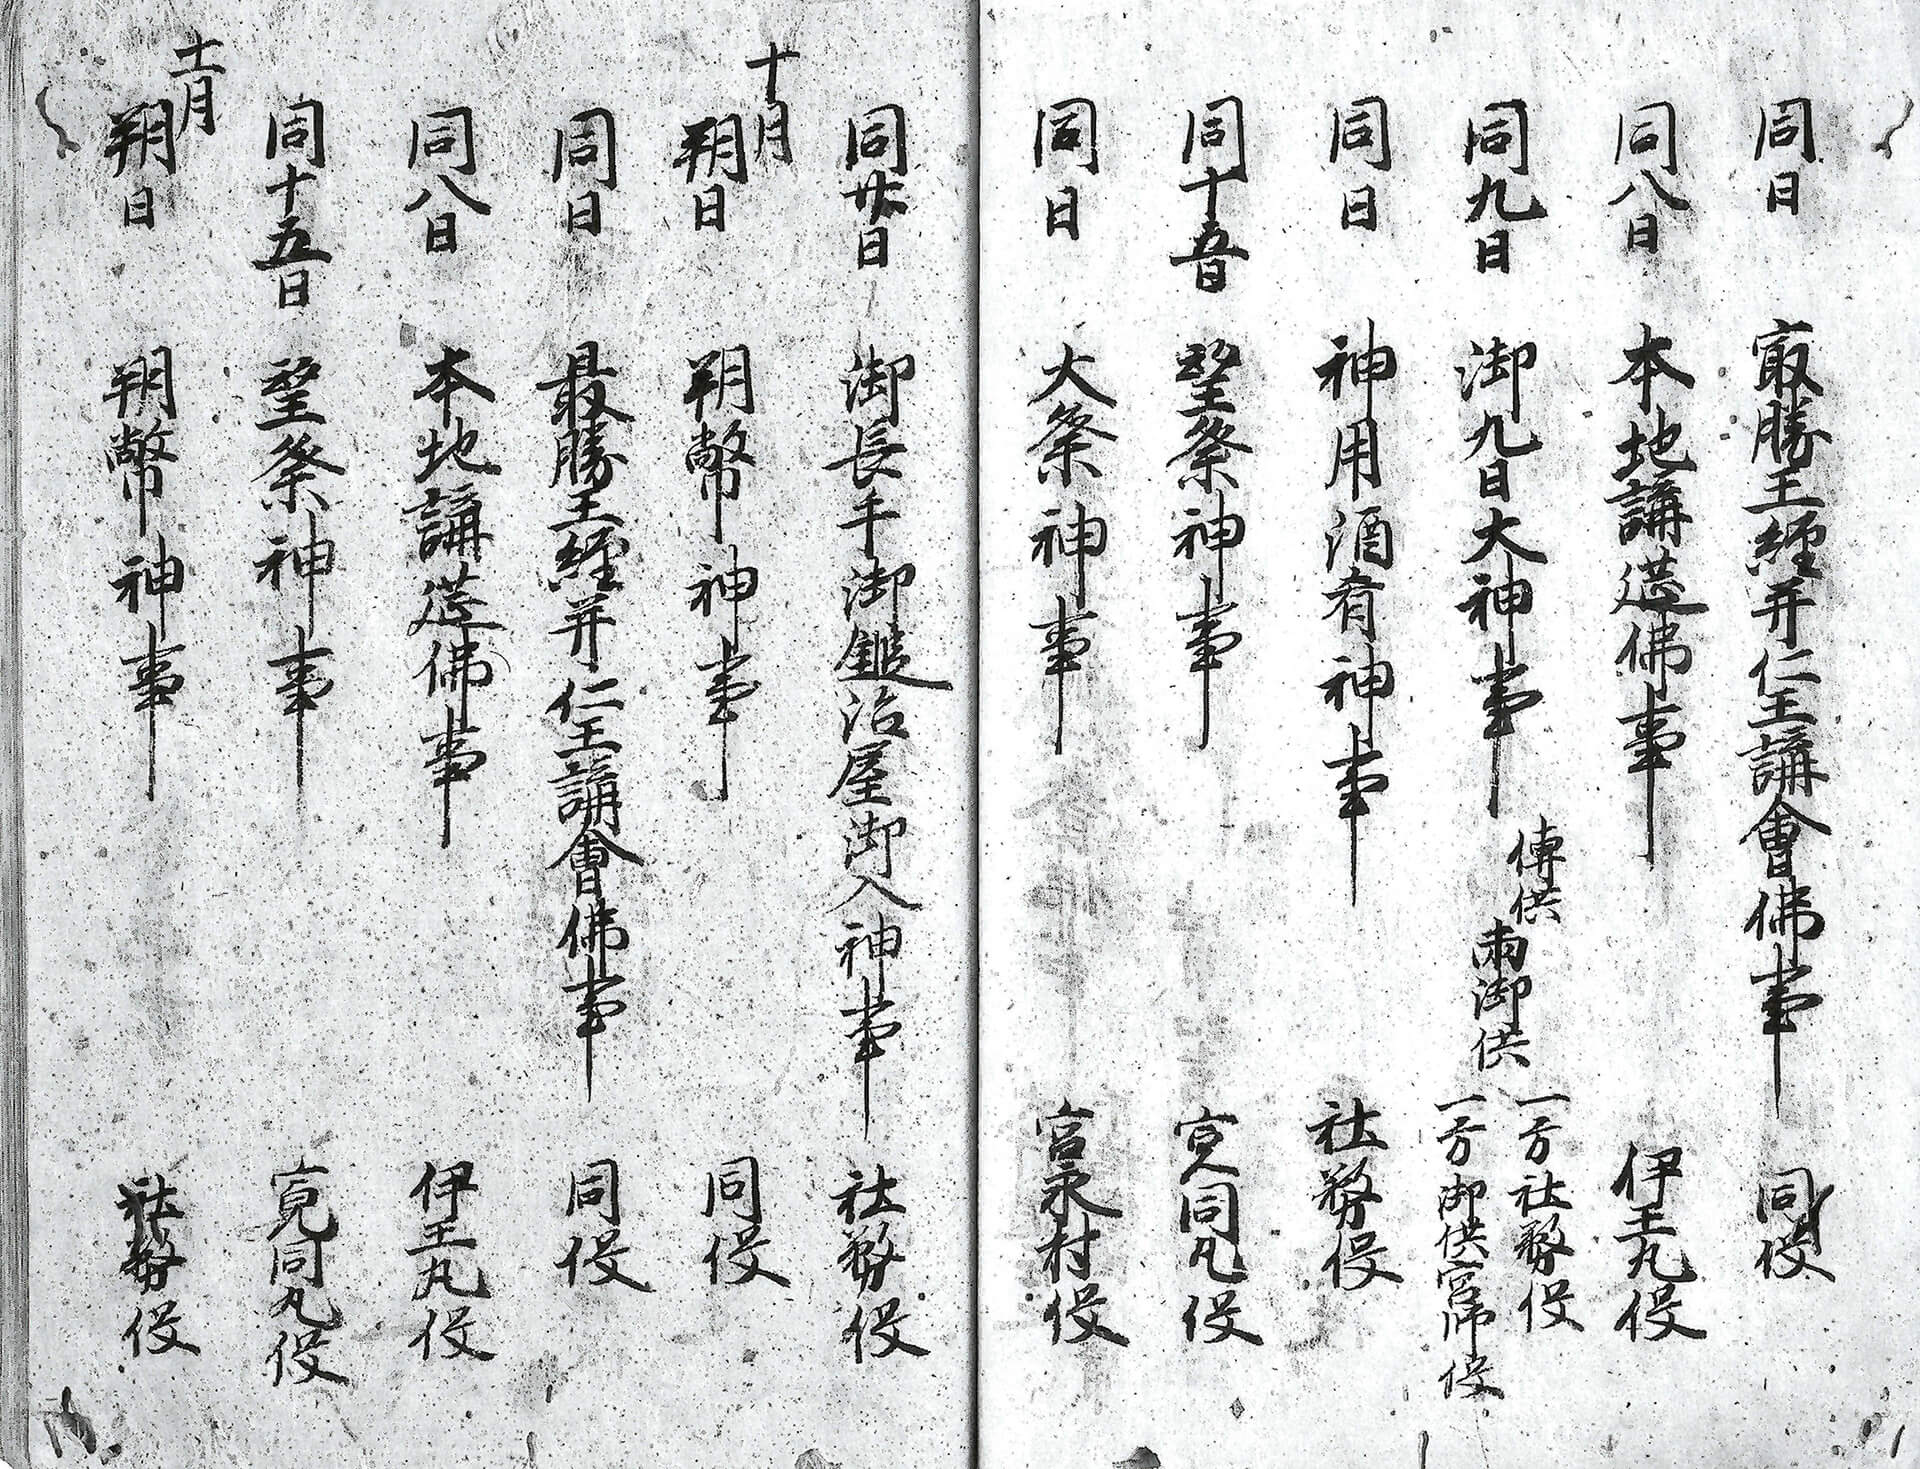 同日 㝡勝王經并仁王講會佛事 同役
同八日 本地講莚佛事 伊王丸役
同九日 御九日大神事 傳供 両御供 一方社務役 一方御供宮师役
同日 神用酒肴神事 社務役
同十五日 望祭神事 寛同丸役
同日 大祭神事 宮永村役
同廿日 御長手御鎰治屋御入神事 社務役
十月
朔日 朔幣神事 同役
同日 最勝王經并仁王講會佛事 同役
同八日 本地講莚佛事 伊王丸役
同十五日 望祭神事 寛同丸役
十一月
朔日 朔幣神事 社務役